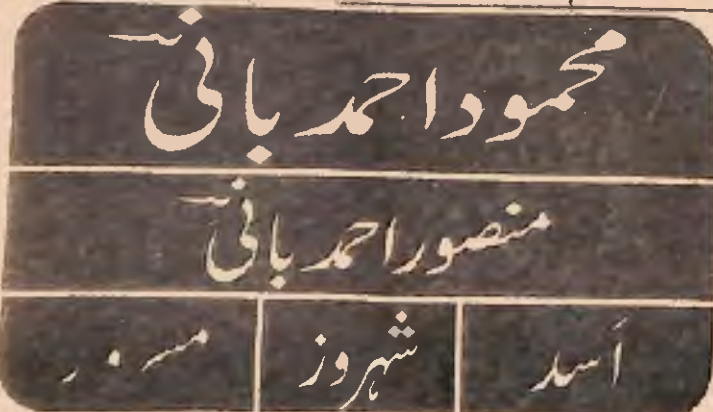 محمود احمد بانی
منصور احمد بانی
اَسد شہروز مسرور